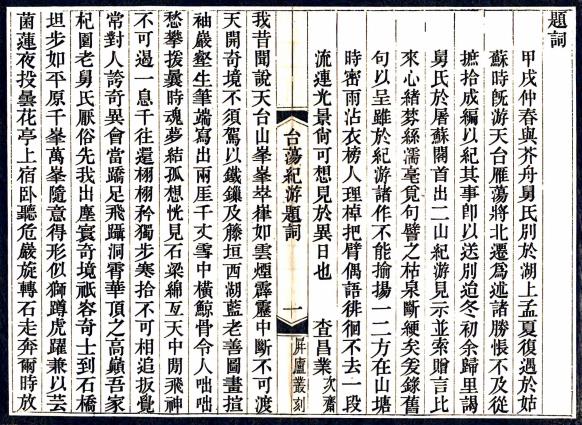 題詞
甲戌仲春與芥舟舅氏別於湖上孟夏復遇於姑
蘇時旣游天台雁蕩將北遷爲述諸勝悵不及從
摭拾成編以紀其事卽以送別迨冬初余歸里謁
舅氏於屠蘇閣首出二山紀游見示並索贈言比
來心緒棼絲濡毫覓句譬之枯泉斷綆矣爰錄舊
句以呈雖於紀游諸作不能揄揚一二方在山塘
時密雨沾衣榜人理棹把臂偶語徘徊不去一段
流連光景尙可想見於異日也 查昌業次齋
台蕩紀游題詞 一 屏廬叢刻
我昔聞說天台山峯峯崒嵂如雲煙霹靂中斷不可渡
天開奇境不須駕以鐵鏁及藤垣西湖藍老善圖畫揎
袖巖壑生筆端寫出兩厓千丈雪中橫鯨骨令人咄咄
愁攀援曩時魂夢結孤想恍見石梁緜亙天中閒飛神
不可遏一息千往還栩栩矜獨步寒拾不可相追扳覺
常對人誇奇異會當蹻足飛躡洞霄華頂之高巔吾家
杞園老舅氏厭俗先我出塵寰奇境祇容奇士到石橋
坦步如平原千峯萬峯隨意得形似獅蹲虎躍兼以芸
菌蓮夜投曇花亭上宿臥聽危巖旋轉石走奔爾時放